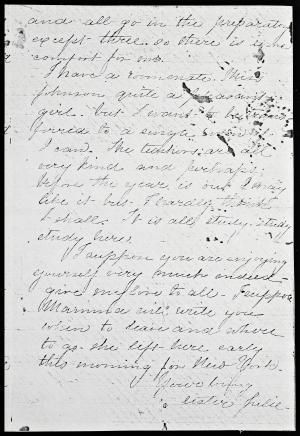 and all go in the preparatory
except three. so there is some
comfort for me.
I have a roommate. Miss
Johnson quite a pleasant
girl. but I want to be
to a single
I can. The teachers are all
very kind and perhaps
before the year is out I may
like it but I hardly think
I shall. It is all study - study
study here.
I suppose you are enjoying
yourself very much indeed
give my love to all - I suppose
Mamma will write you
when to leave and where
to go. she left here early
this morning for New York.
Your loving
sister Julie.